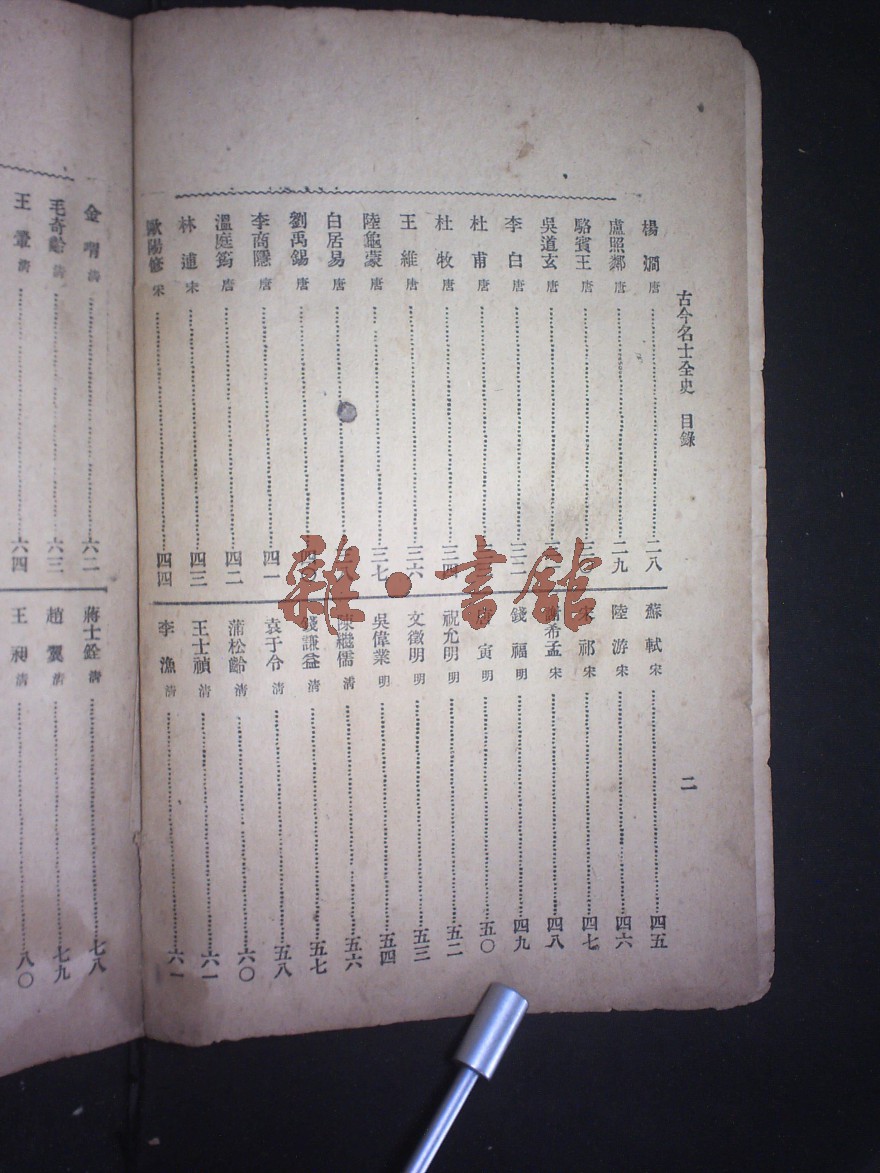 古今名士全史 目錄
二
楊炯 唐 二八
盧照鄰 唐 二九
駱賓王 唐 三
吳道玄 唐 三
李白 唐 三二
杜甫 唐 三
杜牧 唐 三四
王維 唐 三六
陸龜蒙 唐 三七
白居易 唐 三八
劉禹錫 唐 四〇
李商隱 唐 四一
溫庭筠 唐 四二
林逋 宋 四三
歐陽修 宋 四四
蘇軾 宋 四五
陸游 宋 四六
宋祁 宋 四七
謝希孟 宋 四八
錢福 明 四九
唐寅 明 五〇
祝允明 明 五二
文徵明 明 五三
吳偉業 明 五四
陳繼儒 清 五六
錢謙益 清 五七
袁于令 清 五八
蒲松齡 清 六〇
王士禎 清 六一
李漁 清 六一
金 清 六二
毛奇齡 清 六三
王 清 六四
蔣士銓 清 七八
趙翼 清 七九
王昶 清 八〇
雜·書館